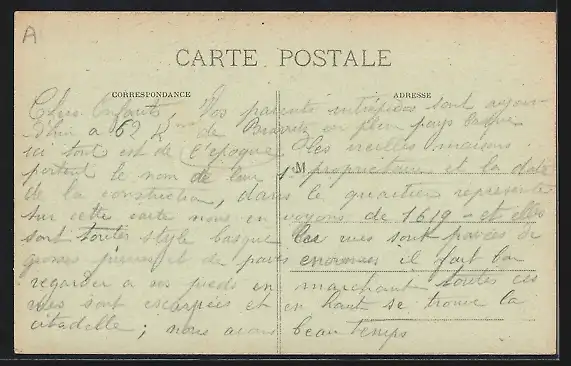 A
CARTE POSTALE
CORRESPONDANCE
ADRESSE
Chers Enfants Vos parents intrépides sont aujour-
d'hui a 62 Km de Biarritz en plein pays basque
ici tout est de l'époque les vieilles maisons
M
portent le nom de leur propriétaire et la date
de la construction, dans le quartier représenté
sur cette carte nous en voyons de 1619 - et elles
sont toutes style basque les rues sont pavées de
grosses pierres et de pavés enormes il faut bien
regarder a ses pieds en marchant toutes ces
rues sont escarpées et en haut se trouve la
citadelle ; nous avons beau temps